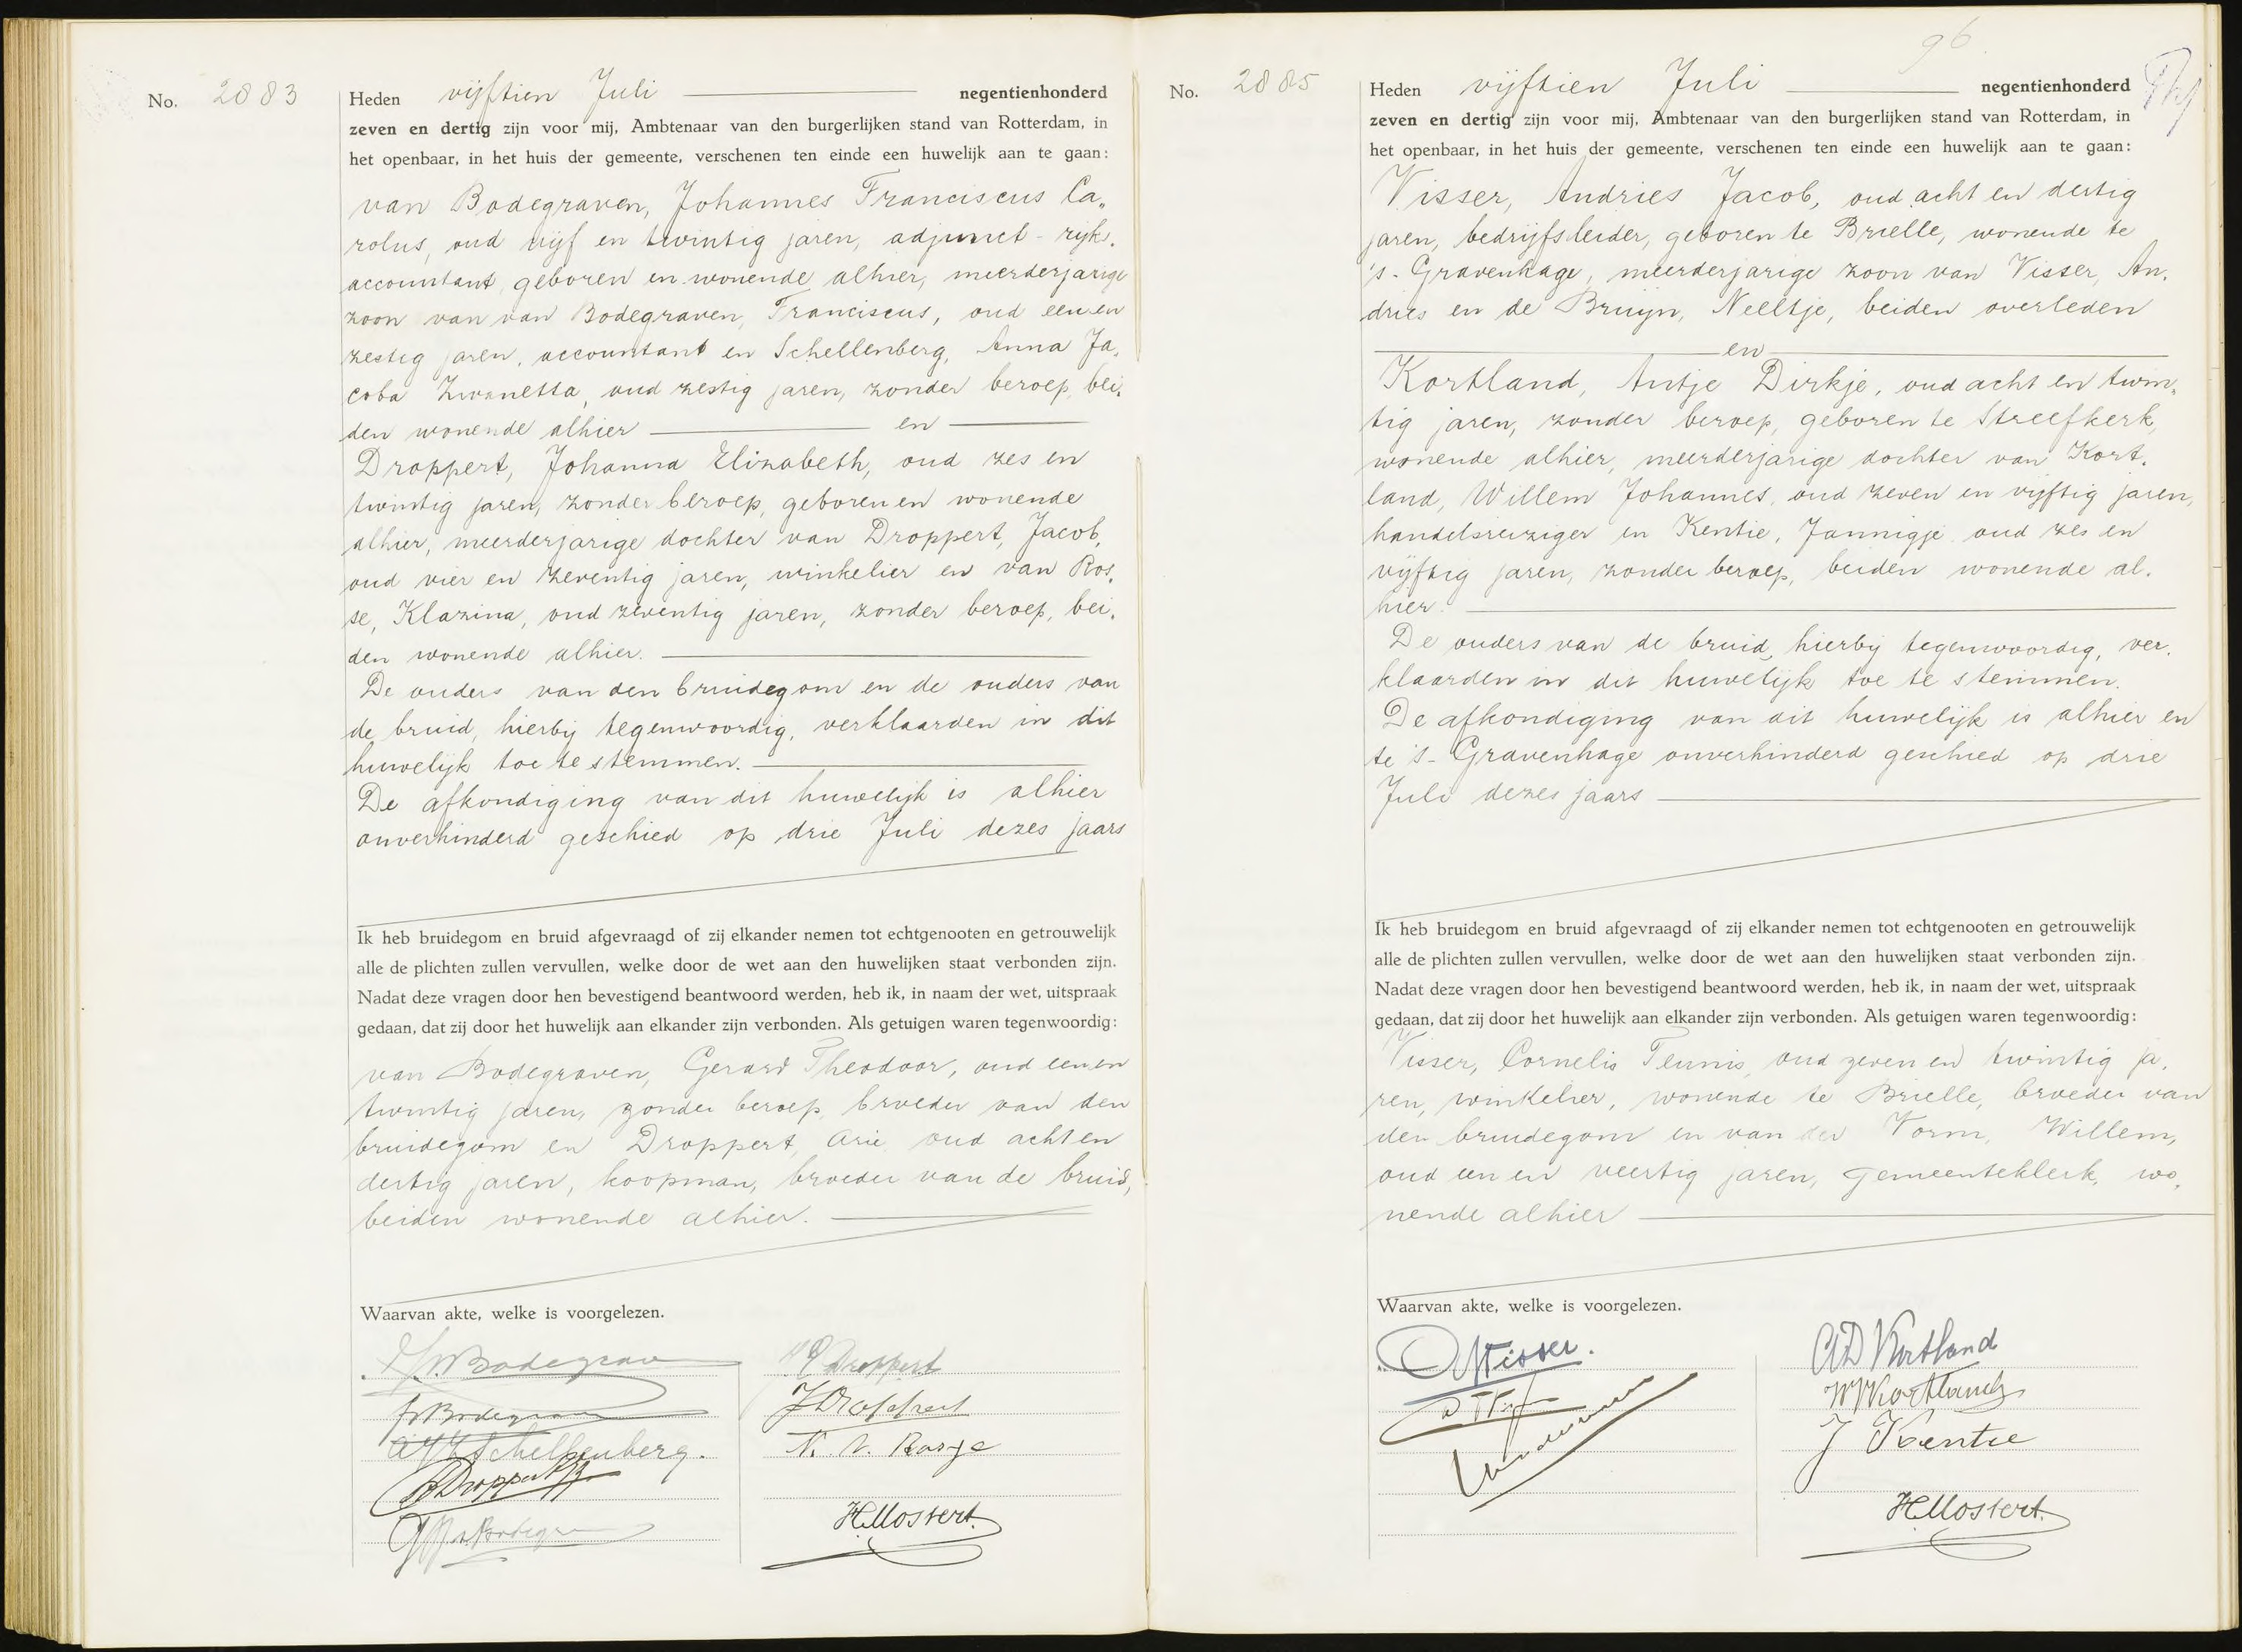 No. 2883
Heden vijftien Juli negentienhonderd
zeven en dertig zijn voor mij, Ambtenaar van den burgerlijken stand van Rotterdam, in
het openbaar, in het huis der gemeente, verschenen ten einde een huwelijk aan te gaan:
van Bodegraven, Johannes Franciscus Ca„
rolus, oud vijf en twintig jaren, adjunct-rijks„
accountant, geboren en wonende alhier, meerderjarige
zoon van van Bodegraven, Franciscus, oud een en
zestig jaren, accountant en Schellenberg, Anna Ja„
coba Zwanetta, oud zestig jaren, zonder beroep, bei„
den wonende alhier en
Droppert, Johanna Elizabeth, oud zes en
twintig jaren, zonder beroep, geboren en wonende
alhier, meerderjarige dochter van Droppert, Jacob,
oud vier en zeventig jaren, winkelier en van Ros„
se, Klazina, oud zeventig jaren, zonder beroep, bei„
den wonende alhier.
De ouders van den bruidegom en de ouders van
de bruid, hierbij tegenwoordig, verklaarden in dit
huwelijk toe te stemmen.
De afkondiging van dit huwelijk is alhier
onverhinderd geschied op drie Juli dezes jaars
Ik heb bruidegom en bruid afgevraagd of zij elkander nemen tot echtgenooten en getrouwelijk
alle de plichten zullen vervullen, welke door de wet aan den huwelijken staat verbonden zijn.
Nadat deze vragen door hen bevestigend beantwoord werden, heb ik, in naam der wet, uitspraak
gedaan, dat zij door het huwelijk aan elkander zijn verbonden. Als getuigen waren tegenwoordig:
van Bodegraven, Gerard Theodoor, oud een en
twintig jaren, zonder beroep, broeder van den
bruidegom en Droppert, Arie, oud acht en
dertig jaren, koopman, broeder van de bruid,
beiden wonende alhier.
Waarvan akte, welke is voorgelezen.
Droppert
JDroppert
Schellenberg.
Droppert
HMostert
96
No. 2885
Heden vijftien Juli negentienhonderd
zeven en dertig zijn voor mij, Ambtenaar van den burgerlijken stand van Rotterdam, in
het openbaar, in het huis der gemeente, verschenen ten einde een huwelijk aan te gaan:
Visser, Andries Jacob, oud acht en dertig
jaren, bedrijfsleider, geboren te Brielle, wonende te
's-Gravenhage, meerderjarige zoon van Visser, An„
dries en de Bruijn, Neeltje, beiden overleden
en
Kortland, Antje Dirkje, oud acht en twin„
tig jaren, zonder beroep, geboren te Streefkerk,
wonende alhier, meerderjarige dochter van Kort„
land, Willem Johannes, oud zeven en vijftig jaren,
handelsreiziger en Kentie, Jannigje oud zes en
vijftig jaren, zonder beroep, beiden wonende al„
hier.
De ouders van de bruid, hierbij tegenwoordig, ver„
klaarden in dit huwelijk toe te stemmen.
De afkondiging van dit huwelijk is alhier en
te 's-Gravenhage onverhinderd geschied op drie
Juli dezes jaars
Ik heb bruidegom en bruid afgevraagd of zij elkander nemen tot echtgenooten en getrouwelijk
alle de plichten zullen vervullen, welke door de wet aan den huwelijken staat verbonden zijn.
Nadat deze vragen door hen bevestigend beantwoord werden, heb ik, in naam der wet, uitspraak
gedaan, dat zij door het huwelijk aan elkander zijn verbonden. Als getuigen waren tegenwoordig:
Visser, Cornelis Teunis, oud zeven en twintig ja„
ren, winkelier, wonende te Brielle, broeder van
den bruidegom en van der Vorm, Willem,
oud een en veertig jaren, gemeenteklerk, wo„
nende alhier
Waarvan akte, welke is voorgelezen.
AJVisser.
AD Kortland
WJKortland
J Kentie
HMostert